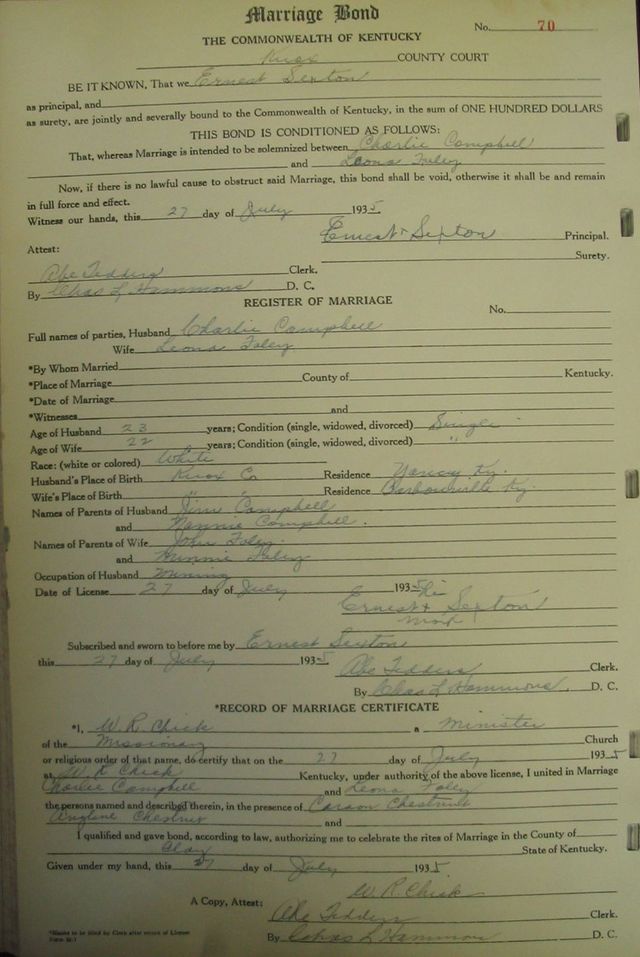 Marriage Bond
No. 70
THE COMMONWEALTH OF KENTUCKY
Knox COUNTY COURT
BE IT KNOWN, That we Ernest Sexton
as principal, and
as surety, are jointly and severally bound to the Commonwealth of Kentucky, in the sum of ONE HUNDRED DOLLARS
THIS BOND IS CONDITIONED AS FOLLOWS:
That, whereas Marriage is intended to be solemnized between Charlie Campbell
and Leona Foley
Now, if there is no lawful cause to obstruct said Marriage, this bond shall be void, otherwise it shall be and remain
in full force and effect.
Witness our hands, this 27 day of July 1935.
Ernest x Sexton Principal.
Surety.
Attest:
Abe Tedders Clerk.
By Chas L Hammons D. C.
REGISTER OF MARRIAGE
No.
Full names of parties, Husband Charlie Campbell
Wife Leona Foley
*By Whom Married
*Place of Marriage County of Kentucky.
*Date of Marriage
*Witnesses and
Age of Husband 23 years; Condition (single, widowed, divorced) Single
Age of Wife 22 years; Condition (single, widowed, divorced) "
Race: (white or colored) White
Husband's Place of Birth Knox Co Residence Ky.
Wife's Place of Birth " " Residence Barbourville Ky.
Names of Parents of Husband Jim Campbell
and Nannie Campbell.
Names of Parents of Wife John Foley
and Minnie Foley
Occupation of Husband Mining
Date of License 27 day of July 1935
his
Ernest x Sexton
mark
Subscribed and sworn to before me by Ernest Sexton
this 27 day of July 1935
Abe Tedders Clerk.
By Chas L Hammons, D. C.
*RECORD OF MARRIAGE CERTIFICATE
*I, W. R. Chick a Minister
of the Missionary Church
or religious order of that name, do certify that on the 27 day of July 1935
at W R Chick Kentucky, under authority of the above license, I united in Marriage
Charlie Campbell and Leona Foley
the persons named and described therein, in the presence of Carson Chestnut
Chestnut and
I qualified and gave bond, according to law, authorizing me to celebrate the rites of Marriage in the County of
Clay State of Kentucky.
Given under my hand, this 27 day of July 1935.
W. R. Chick
A Copy, Attest:
Abe Tedders Clerk.
By Chas L Hammons D. C.
*Blanks to be filled by Clerk after return of License